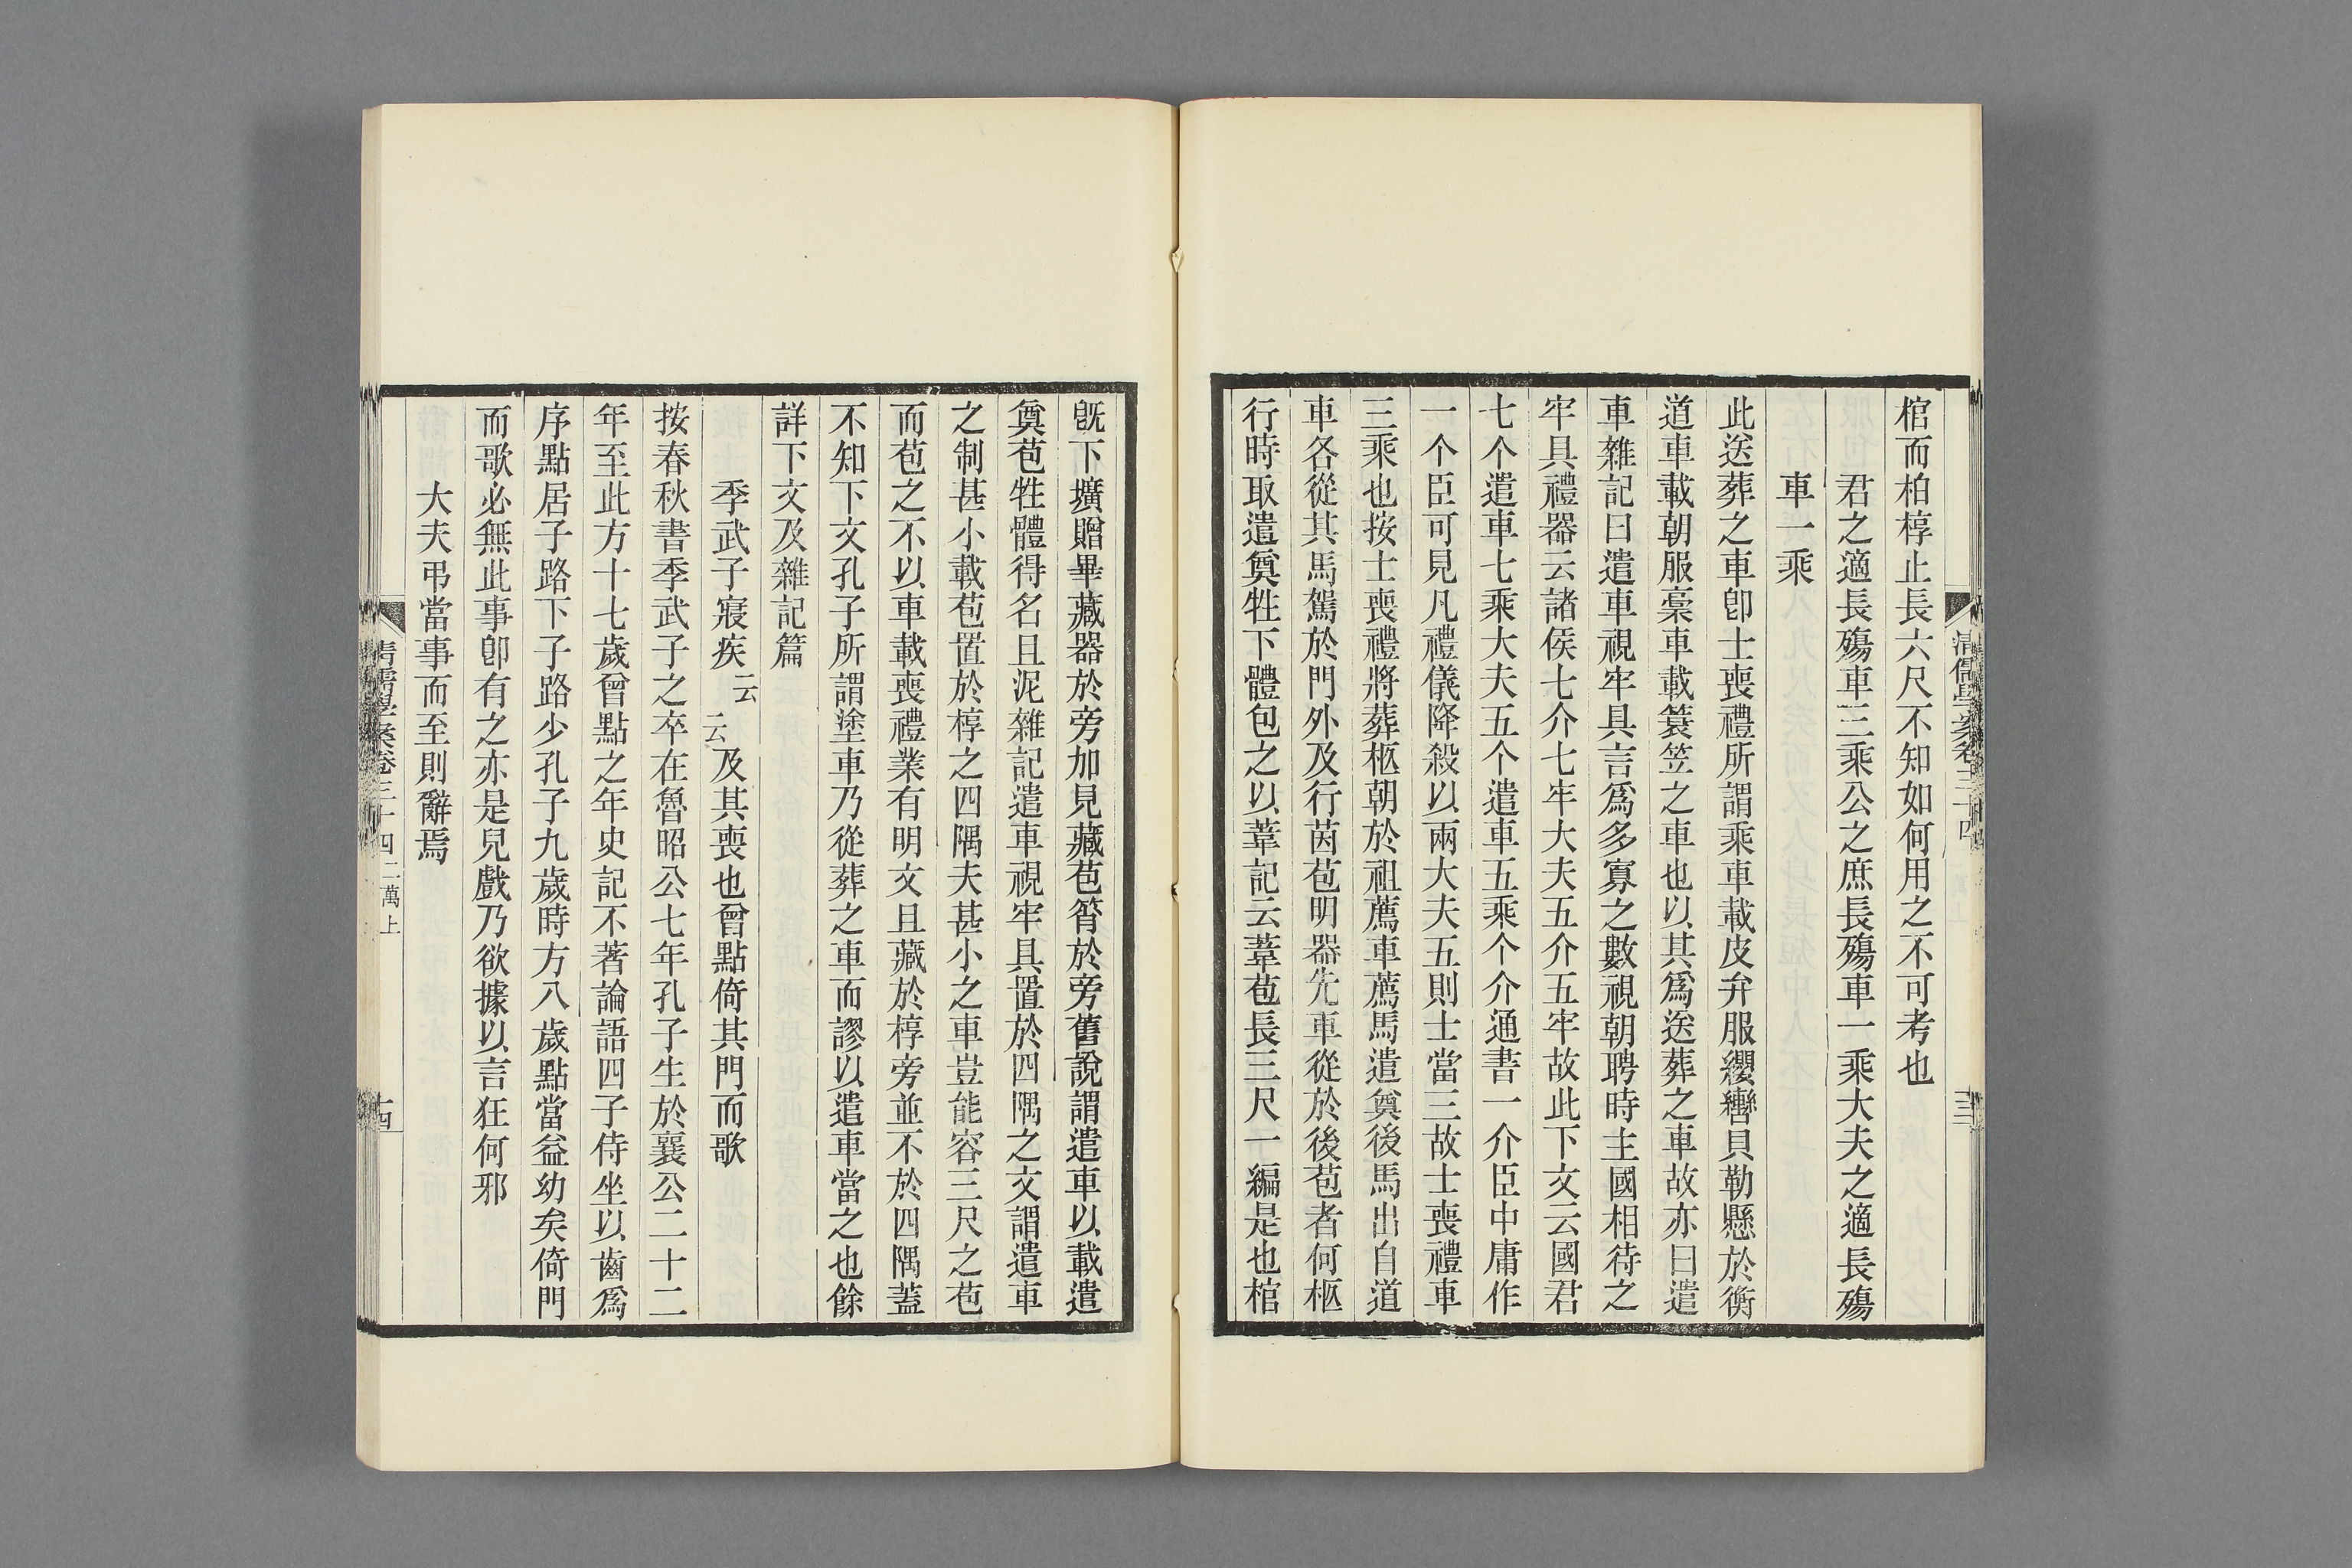 棺而柏椁止長六尺不知如何用之不可考也
君之適長殤車三乘公之庶長殤車一乘大夫之適長殤
車一乘
此送葬之車卽士喪禮所謂乘車載皮弁服纓轡貝勒懸於衡
道車載朝服稾車載簑笠之車也以其爲送葬之車故亦曰遣
車雜記曰遣車視牢具言爲多寡之數視朝聘時主國相待之
牢具禮器云諸侯七介七牢大夫五介五牢故此下文云國君
七个遣車七乘大夫五个遣車五乘个介通書一介臣中庸作
一个臣可見凡禮儀降殺以兩大夫五則士當三故士喪禮車
三乘也按士喪禮將葬柩朝於祖薦車薦馬遣奠後馬出自道
車各從其馬駕於門外及行茵苞明器先車從於後苞者何柩
行時取遣奠牲下體包之以葦記云葦苞長三尺一編是也棺
旣下壙贈畢藏器於旁加見藏苞筲於旁舊說謂遣車以載遣
奠苞牲體得名且泥雜記遣車視牢具置於四隅之文謂遣車
之制甚小載苞置於椁之四隅夫甚小之車豈能容三尺之苞
而苞之不以車載喪禮業有明文且藏於椁旁並不於四隅蓋
不知下文孔子所謂塗車乃從葬之車而謬以遣車當之也餘
詳下文及雜記篇
季武子寢疾云云及其喪也曾點倚其門而歌
按春秋書季武子之卒在魯昭公七年孔子生於襄公二十二
年至此方十七歲曾點之年史記不著論語四子侍坐以齒爲
序點居子路下子路少孔子九歲時方八歲點當益幼矣倚門
而歌必無此事卽有之亦是兒戲乃欲據以言狂何邪
大夫弔當事而至則辭焉
清儒學案卷三十四 二萬上
十四